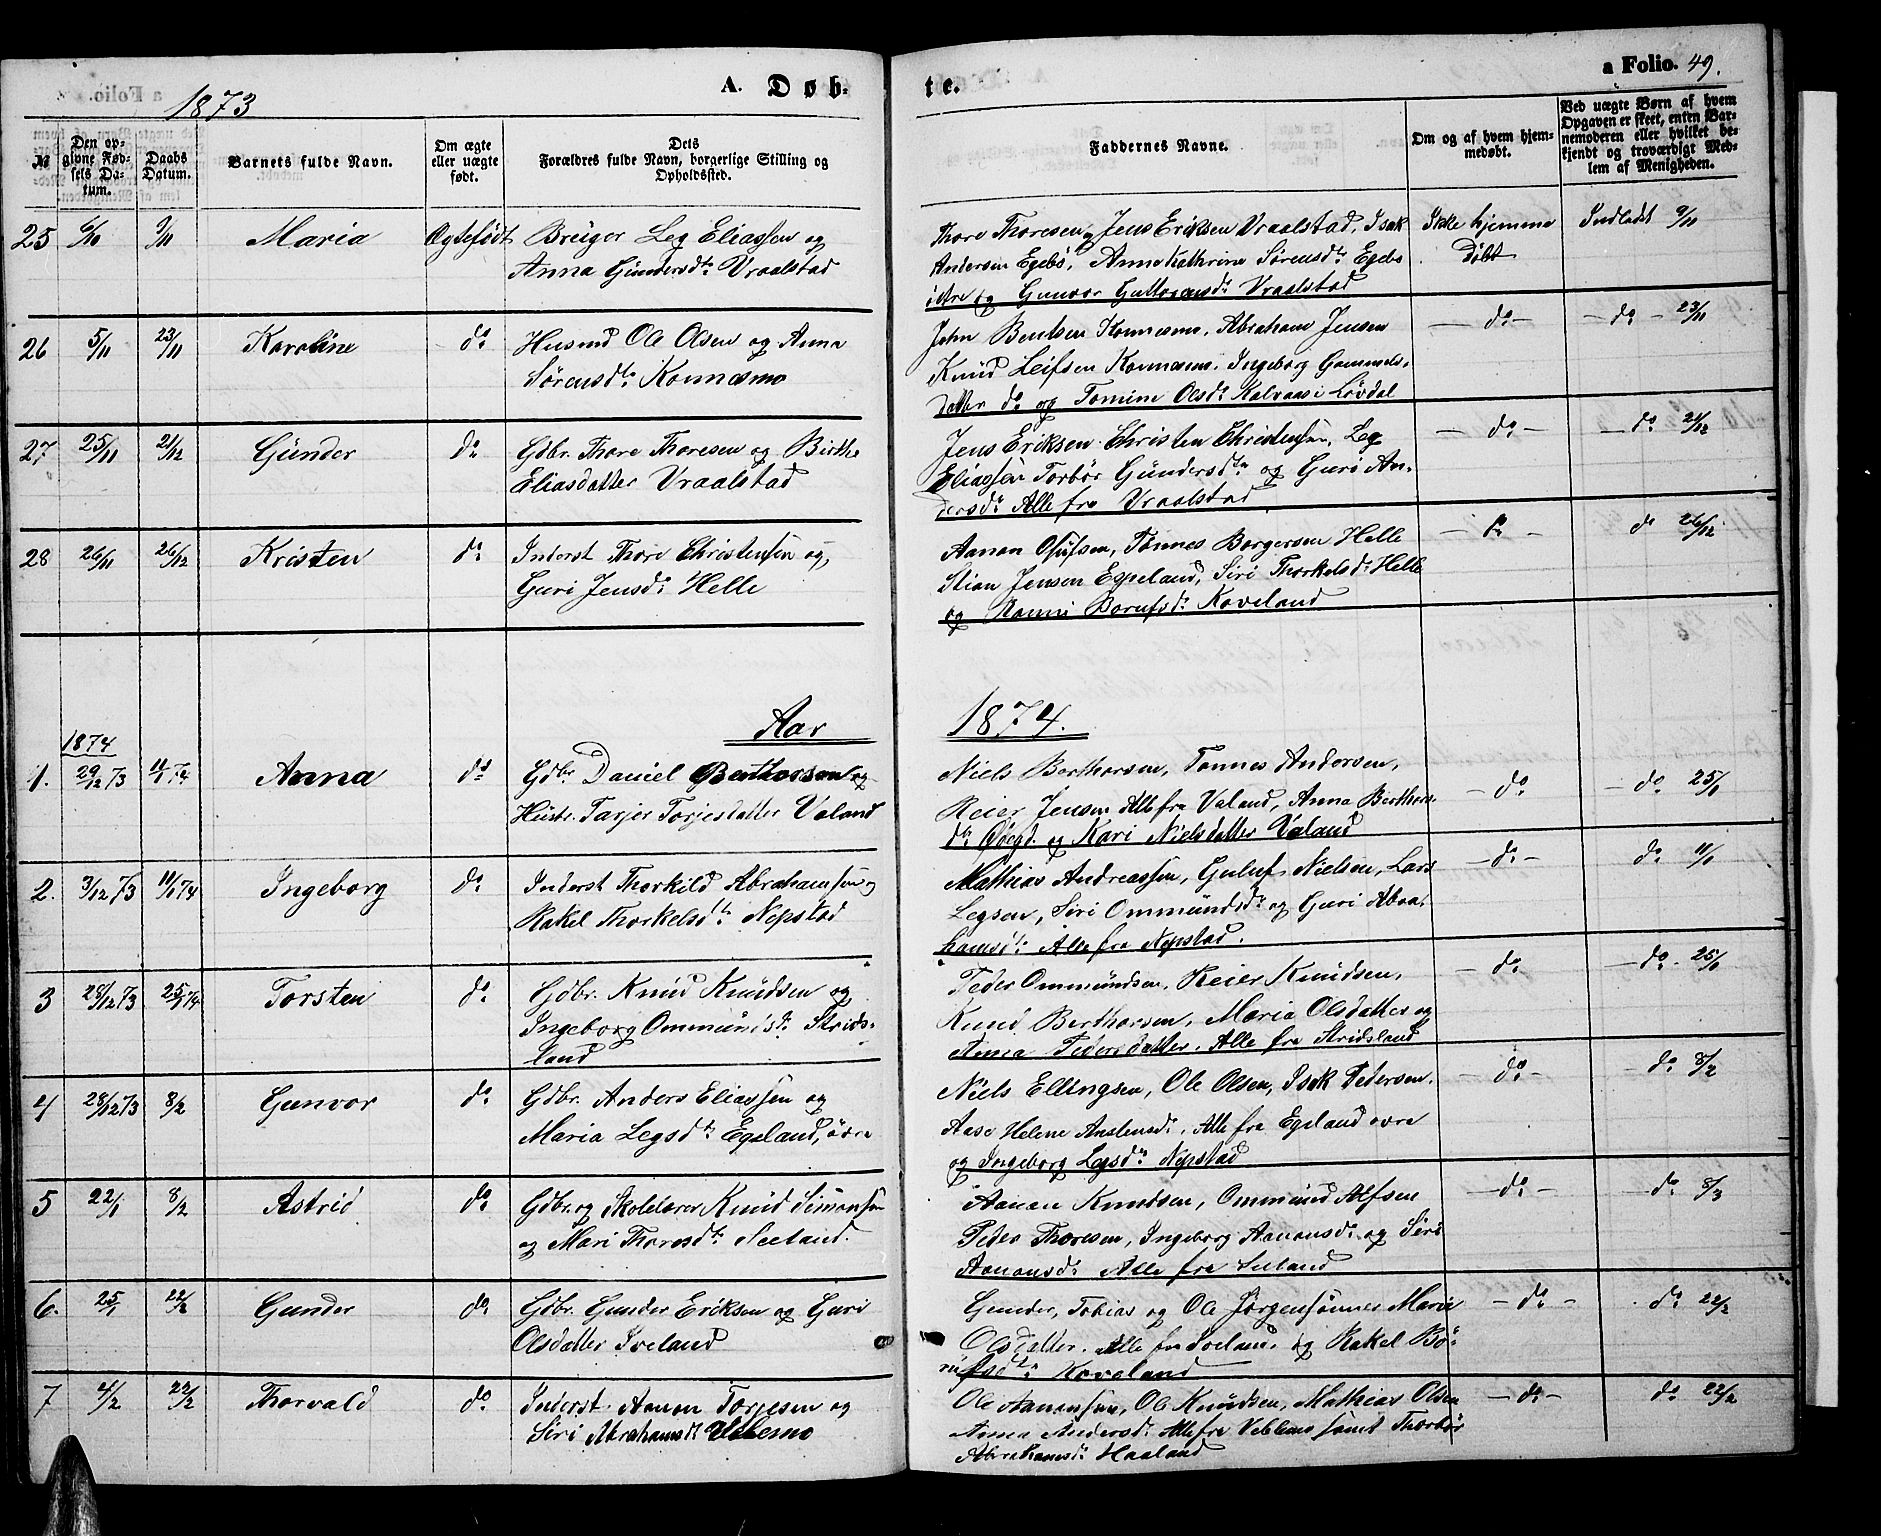 1873
A. Døb-
te.
a Folio. 49.
№
Den opgivne Fødsels Datum.
Daabs Datum.
Barnets fulde Navn.
Om ægte eller uægte født.
Dets Forældres fulde Navn, borgerlige Stilling og Opholdssted.
Faddernes Navne.
Om og af hvem hjemmedøbt.
Ved uægte Børn af hvem Opgaven er skeet, enten Barnemoderen eller hvilket bekjendt og troværdigt Medlem af Menigheden.
25 9/11 Maria Ægtefødt
Leg Eliassen og
Anna Gundersdtr Vraalstad
Thore Thoresen, Jens Eriksen Vraalstad, Isak
Andersen Egebø, Anne Kathrine Sørensdtr Egebø
og Gunvor Guttormsdtr Vraalstad
Ikke hjemme
døbt
Indladt 9/11
26 5/11 23/11 Karoline do
Husmd Ole Olsen og Anna
Sørensdtr Konnesmo
John Bentsen Konnesmo, Abraham Jensen
Knud Leifsen Konnesmo, Ingeborg Gammels-
datter do og Tomine Olsdr Kalvaasi Løvdal
do
do 23/11
27 25/11 21/12 Gunder do
Gdbr. Thore Thoresen og Birthe
Eliasdatter Vraalstad
Jens Eriksen, Christen Christensen, Leg
Eliassen Torbør Gundersdtr og Guri An-
dersdr Alle fra Vraalstad
do
do 21/12
28 26/11 26/12 Kristen do
Inderst Thore Christensen og
Guri Jensdr Helle
Aanon Olufsen, Tønnes Borgersen Helle
Stian Jensen Egeland, Siri Thorkelsdr Helle
og Borufsdr Koveland
do 26/12
Aar
1874.
1874
1. 29/12 73 11/1 74 Anna do
Gdbr Daniel Berthorsen og
Hustr. Tarjer Torjesdatter Valand
Niels Berthorsen, Tønnes Andersen,
Reier Jensen Alle fra Valand, Anna Berthors-
dr Øvegd. og Kari Nielsdatter Valand
do
do 25/1
2. 3/12 73 11/1 74 Ingeborg do
Inderst Thorkild Abrahamsen og
Rakel Thorkelsdtr Nepstad
Mathias Andreassen, Guluf Nielsen, Lars
Legsen, Siri Ommundsdr og Guri Abra-
hamsdtr Alle fra Nepstad.
do
do 11/1
3 28/12 73 25/1 74 Torsten do
Gdbr. Knud Knudsen og
Ingeborg Ommundsdr Strids-
land
Peder Ommundsen, Reier Knudsen,
Knud Berthorsen, Maria Olsdatter og
Anna Pedersdatter. Alle fra Stridsland
do
do 25/1
4 28/12 73 8/2 Gunvor do
Gdbr. Anders Eliassen og
Maria Legsdtr Egeland, øvre
Niels Ellingsen, Ole Olsen, Isak Pedersen,
Aase Helene Anstensdr, Alle fra Egeland øvre
og Ingeborg Legsdr Nepstad
do
do 8/2
5 22/1 8/2 Astrid do
Gdbr. og Skolelærer Knud Simonsen
og Mari Thoresdtr Seeland.
Aanon Knudsen, Ommund Alfsen
Peder Thoresen, Ingeborg Aanonsdr og Siri
Aanonsdr Alle fra Seeland
do
do 8/3
6. 25/1 22/2 Gunder do
Gdbr. Gunder Eriksen og Guri
Olsdatter Iveland
Gunder, Tobias og Ole Jørgensønner Marie
Olsdatter. Alle fra Iveland og Rakel Bø-
rufsdtr Koveland
do
do 22/2
7 4/2 22/2 Thorvald do
Inderst Aanon Torjesen og
Siri Abrahamsdr
Ole Aanonsen, Ole Knudsen, Mathias Olsen
Anna Andersdr Alle fra samt Thorbør
Abrahamsdr Haaland
do
do 22/2